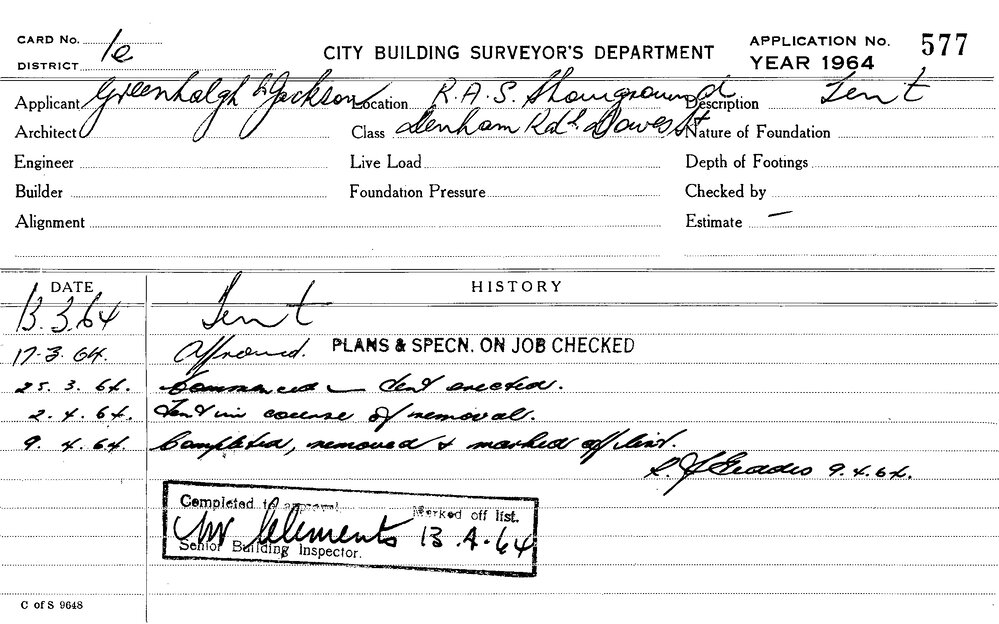 CARD No. 1e
DISTRICT
CITY BUILDING SURVEYOR'S DEPARTMENT
APPLICATION No. 577
YEAR 1964
Applicant Greenhalgh & Jackson Location R.A.S. Showground Description Tent
Architect Class Denham Rd & Dowes St Nature of Foundation
Engineer Live Load Depth of Footings
Builder Foundation Pressure Checked by
Alignment Estimate –
DATE HISTORY
13.3.64 Tent
17.3.64. Approved. PLANS & SPECN. ON JOB CHECKED
25.3.64. Commenced – tent erected.
2.4.64. Tent in course of removal.
9.4.64. Completed, removed & marked off list.
9.4.64.
Completed to approval Marked off list.
Clements 13.4.64
Senior Building Inspector.
C of S 9648